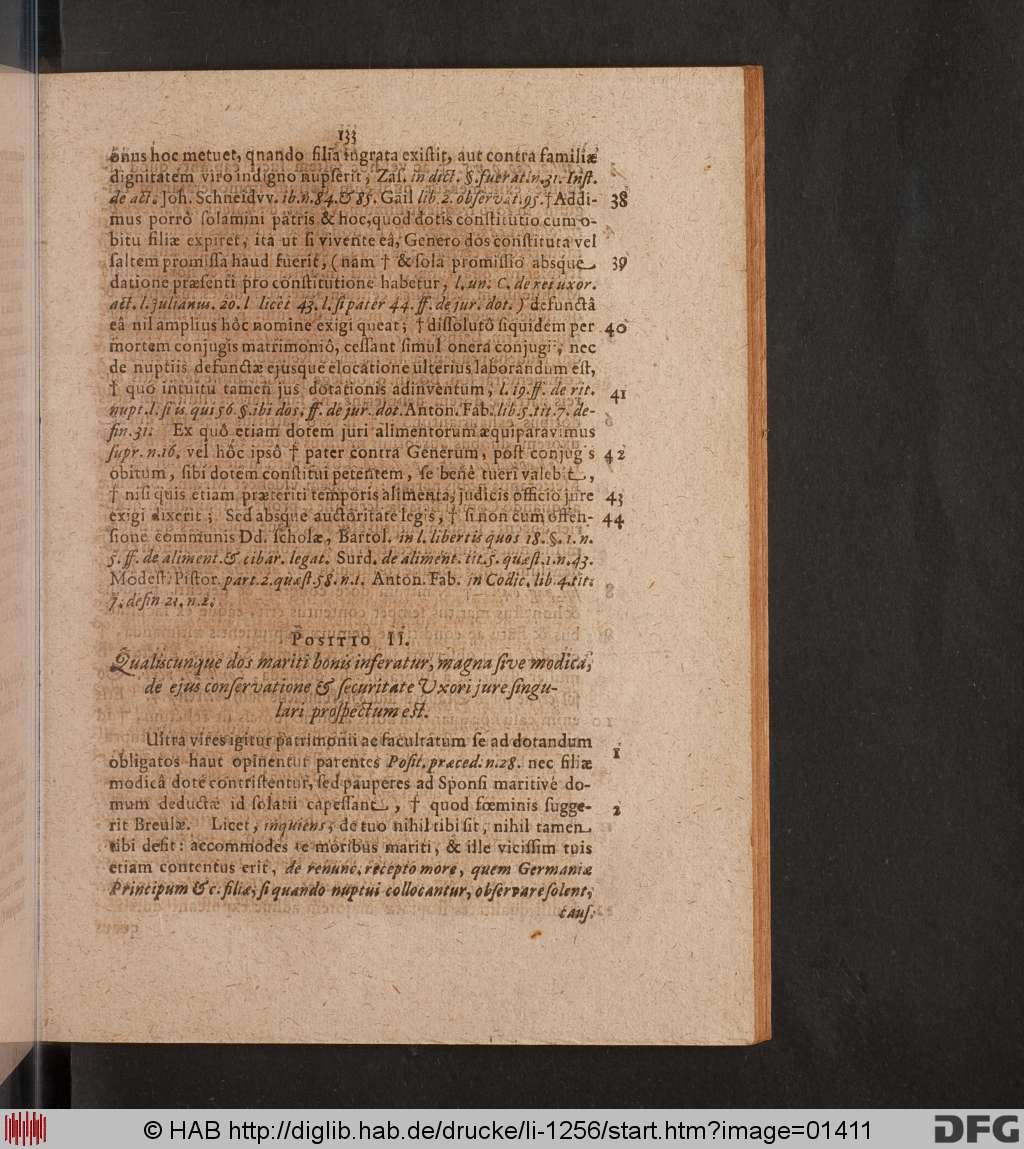 133
onus hoc metuet, qnando filia ingrata existit, aut contra familiæ
dignitatem viro indigno nupserit, Zas. in dict. §. fuerat in. 31. Inst.
de act. Joh. Schneidvv. ib. n. 84. & 85. Gail lib. 2. observat. 95. † Addi- 38
mus porrò solamini patris & hoc, quod dotis constitutio cum o-
bitu filiæ expiret, ita ut si vivente eâ, Genero dos constituta vel
saltem promissa haud fuerit, (nam † & sola promissio absque 39
datione præsenti pro constitutione habetur, l. un. C. de rei uxor.
act. l. julianus. 20. l licèt 43. l. si pater 44. ff. de jur. dot.) defunctâ
eâ nil amplius hôc nomine exigi queat; † dissolutô siquidem per 40
mortem conjugis matrimoniô, cessant simul onera conjugii, nec
de nuptiis defunctæ ejusque elocatione ulterius laborandum est,
† quo intuitu tamen jus dotationis adinventum, l. 19. ff. de rit. 41
nupt. l. si is qui 56. §. ibi dos. ff. de jur. dot. Anton. Fab. lib. 5. tit. 7. de-
fin. 31. Ex quô etiam dotem juri alimentorum æquiparavimus
supr. n. 16. vel hôc ipsô † pater contra Generum, post conjugis 42
obitum, sibi dotem constitui petentem, se benè tueri valebit,
† nisi quis etiam præteriti temporis alimenta, judicis officio jure 43
exigi dixerit; Sed absque auctoritate legis, † si non cum offen- 44
sione communis Dd. scholæ, Bartol. in l. libertis quos 18. §. 1. n.
5. ff. de aliment. & cibar. legat. Surd. de aliment. tit. 5. quæst. 1. n. 43.
Modest. Pistor. part. 2. quæst 58. n. 1. Anton. Fab. in Codic. lib 4. tit.
7. defin 21. n. 2.
POSITIO II.
Qualiscunque dos mariti bonis inferatur, magna sive modica,
de ejus conservatione & securitate Uxori jure singu-
lari prospectum est.
Ultra vires igitur patrimonii ac facultatum se ad dotandum
obligatos haut opinentur parentes Posit. præced. n. 28. nec filiæ 1
modicâ dote contristentur, sed pauperes ad Sponsi maritive do-
mum deductæ id solatii capessant, † quod fœminis sugge- 2
rit Breulæ. Licet, inquiens, de tuo nihil tibi sit, nihil tamen
tibi desit: accommodes te moribus mariti, & ille vicissim tuis
etiam contentus erit, de renunc. recepto more, quem Germaniæ
Principum & c. filiæ, si quando nuptui collocantur, observare solent,
caus.
© HAB http://diglib.hab.de/drucke/li-1256/start.htm?image=01411
DFG